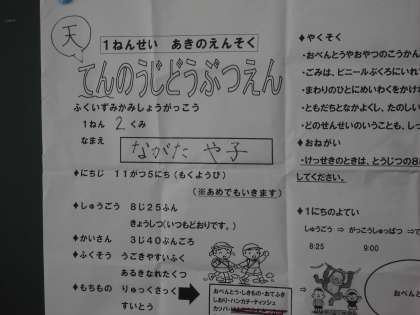 天
1ねんせい　あきのえんそく
てんのうじどうぶつえん
ふくいずみかみしょうがっこう
1ねん　2くみ
なまえ　ながた　や子
♦にちじ　11がつ5にち（もくようび）
（※あめでもいきます）
♦しゅうごう　8じ25ふん
きょうしつ（いつもどおりです。）
♦かいさん　3じ40ぷんごろ
♦ふくそう　うごきやすいふく
あるきなれたくつ
♦もちもの　りゅっくさっく
すいとう
おべんとう・しきもの・おてふき
しおり・ハンカチ・ティッシュ
♦やくそく
・おべんとうやおやつのこうかん
・ごみは、ビニールぶくろにいれ
・まわりのひとにめいわくをかけ
・ともだちとなかよくし、たのしい
・どのせんせいのいうことも、しっ
♦おねがい
・けっせきのときは、とうじつの8
してください。
♦1にちのよてい
しゅうごう　⇒　がっこうしゅっぱつ　⇒
8:25　9:00